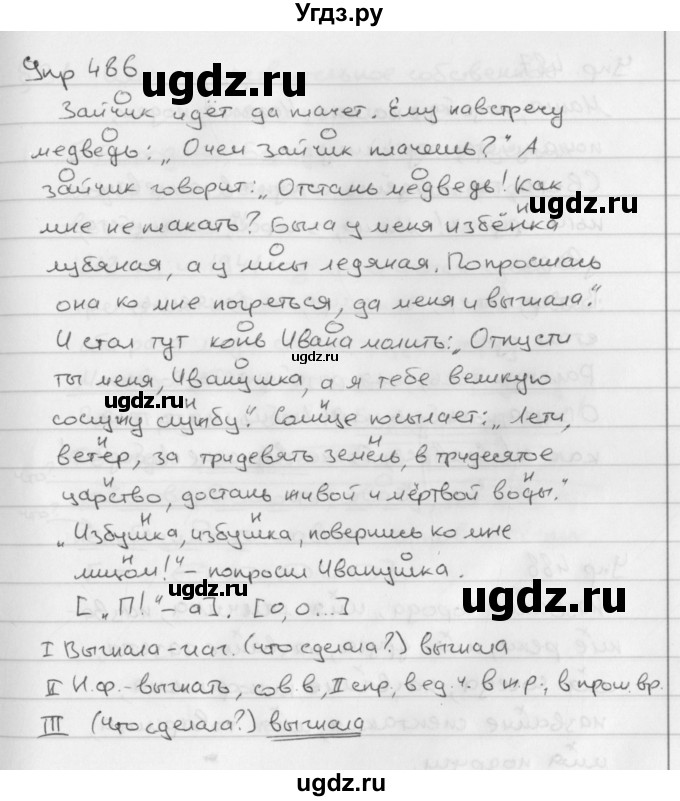 Угдз.ру
Упр 486
ugdz.ru
Зайчик идёт да плачет. Ему навстречу
медведь: „О чем зайчик плачешь?" А
зайчик говорит: „Отстань медведь! Как
ugdz.ru
мне не плакать? Была у меня избёнка
лубяная, а у лисы ледяная. Попросилась
она ко мне погреться, да меня и выгнала."
И стал тут конь Ивана молить: „Отпусти
ugdz.ru
ты меня, Иванушка, а я тебе великую
ugdz.ru
сослужу службу". Солнце посылает: „Лети,
ветер, за тридевять земель, в тридесятое
царство, достань живой и мёртвой воды."
„Избушка, избушка, повернись ко мне
лицом!" – попросил Иванушка.
ugdz.ru
ugdz.ru
[„П!" – а]. [О, О...]
I Выгнала – глаг. (что сделала?) выгнала
II Н.ф. – выгнать, сов. в, II спр, в ед. ч. в ж.р., в прош. вр.
III (Что сделала?) выгнала
ugdz.ru